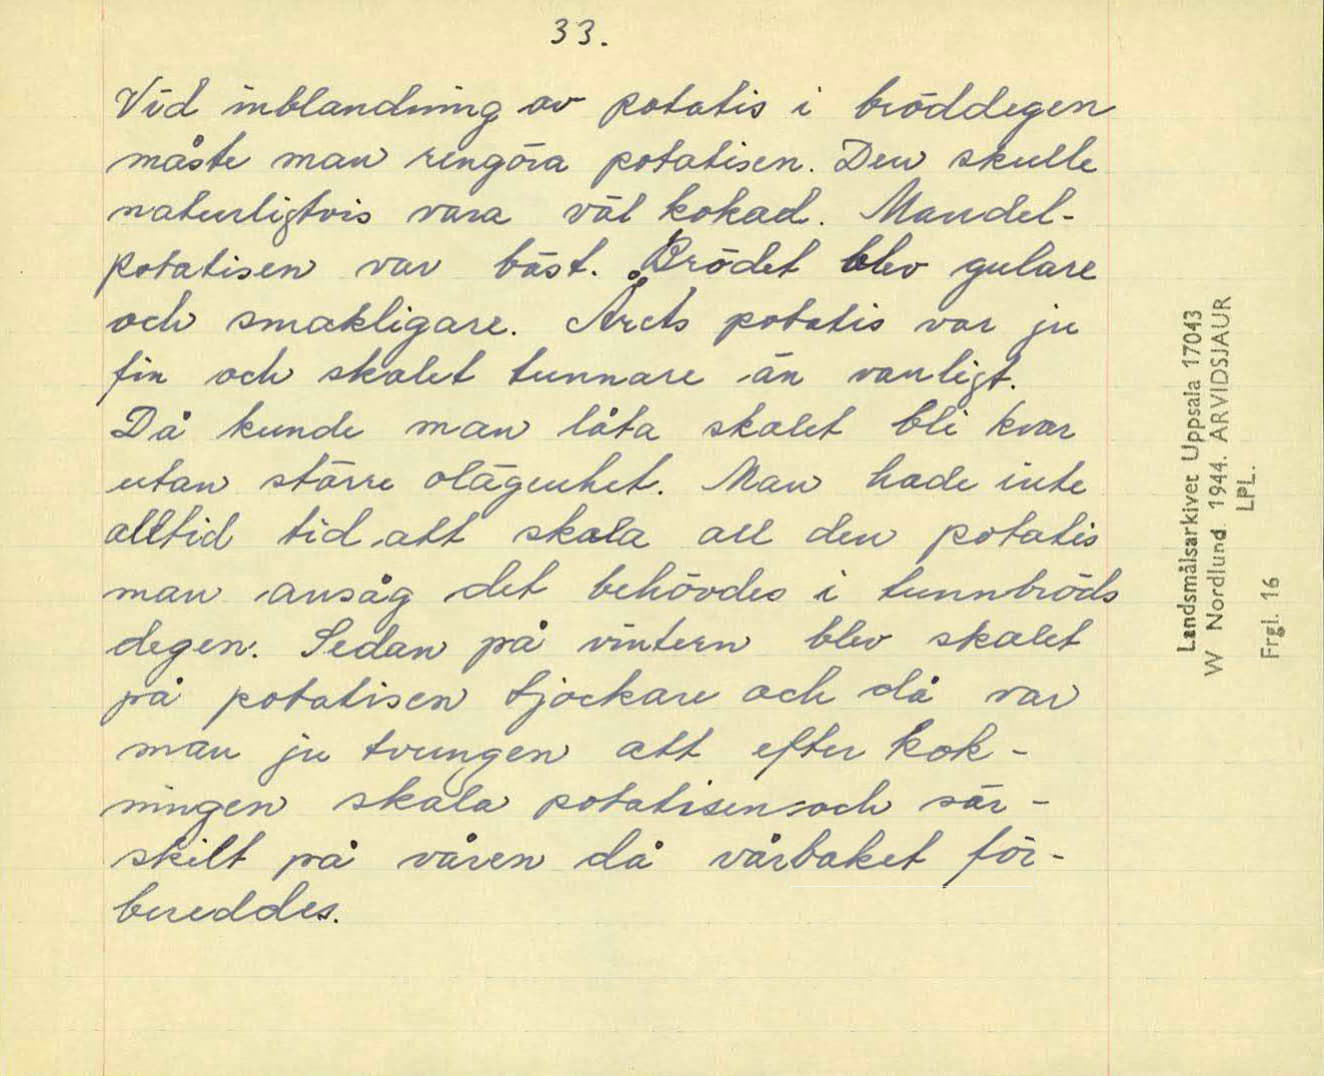 33.
Vid inblandning av potatis i bröddegen
måste man rengöra potatisen. Den skulle
naturligtvis vara väl kokad. Mandel-
potatisen var bäst. Brödet blev gulare
och smakligare. Årets potatis var ju
fin och skalet tunnare än vanligt.
Då kunde man låta skalet bli kvar
utan större olägenhet. Man hade inte
alltid tid att skala all den potatis
man ansåg det behövdes i tunnbröds
degen. Sedan på vintern blev skalet
på potatisen tjockare och då var
man ju tvungen att efter kok-
ningen skala potatisen och sär-
skilt på våren då vårbaket för-
bereddes.
Landsmålsarkivet Uppsala 17043
W Nordlund 1944. ARVIDSJAUR
LPL.
Frgl. 16